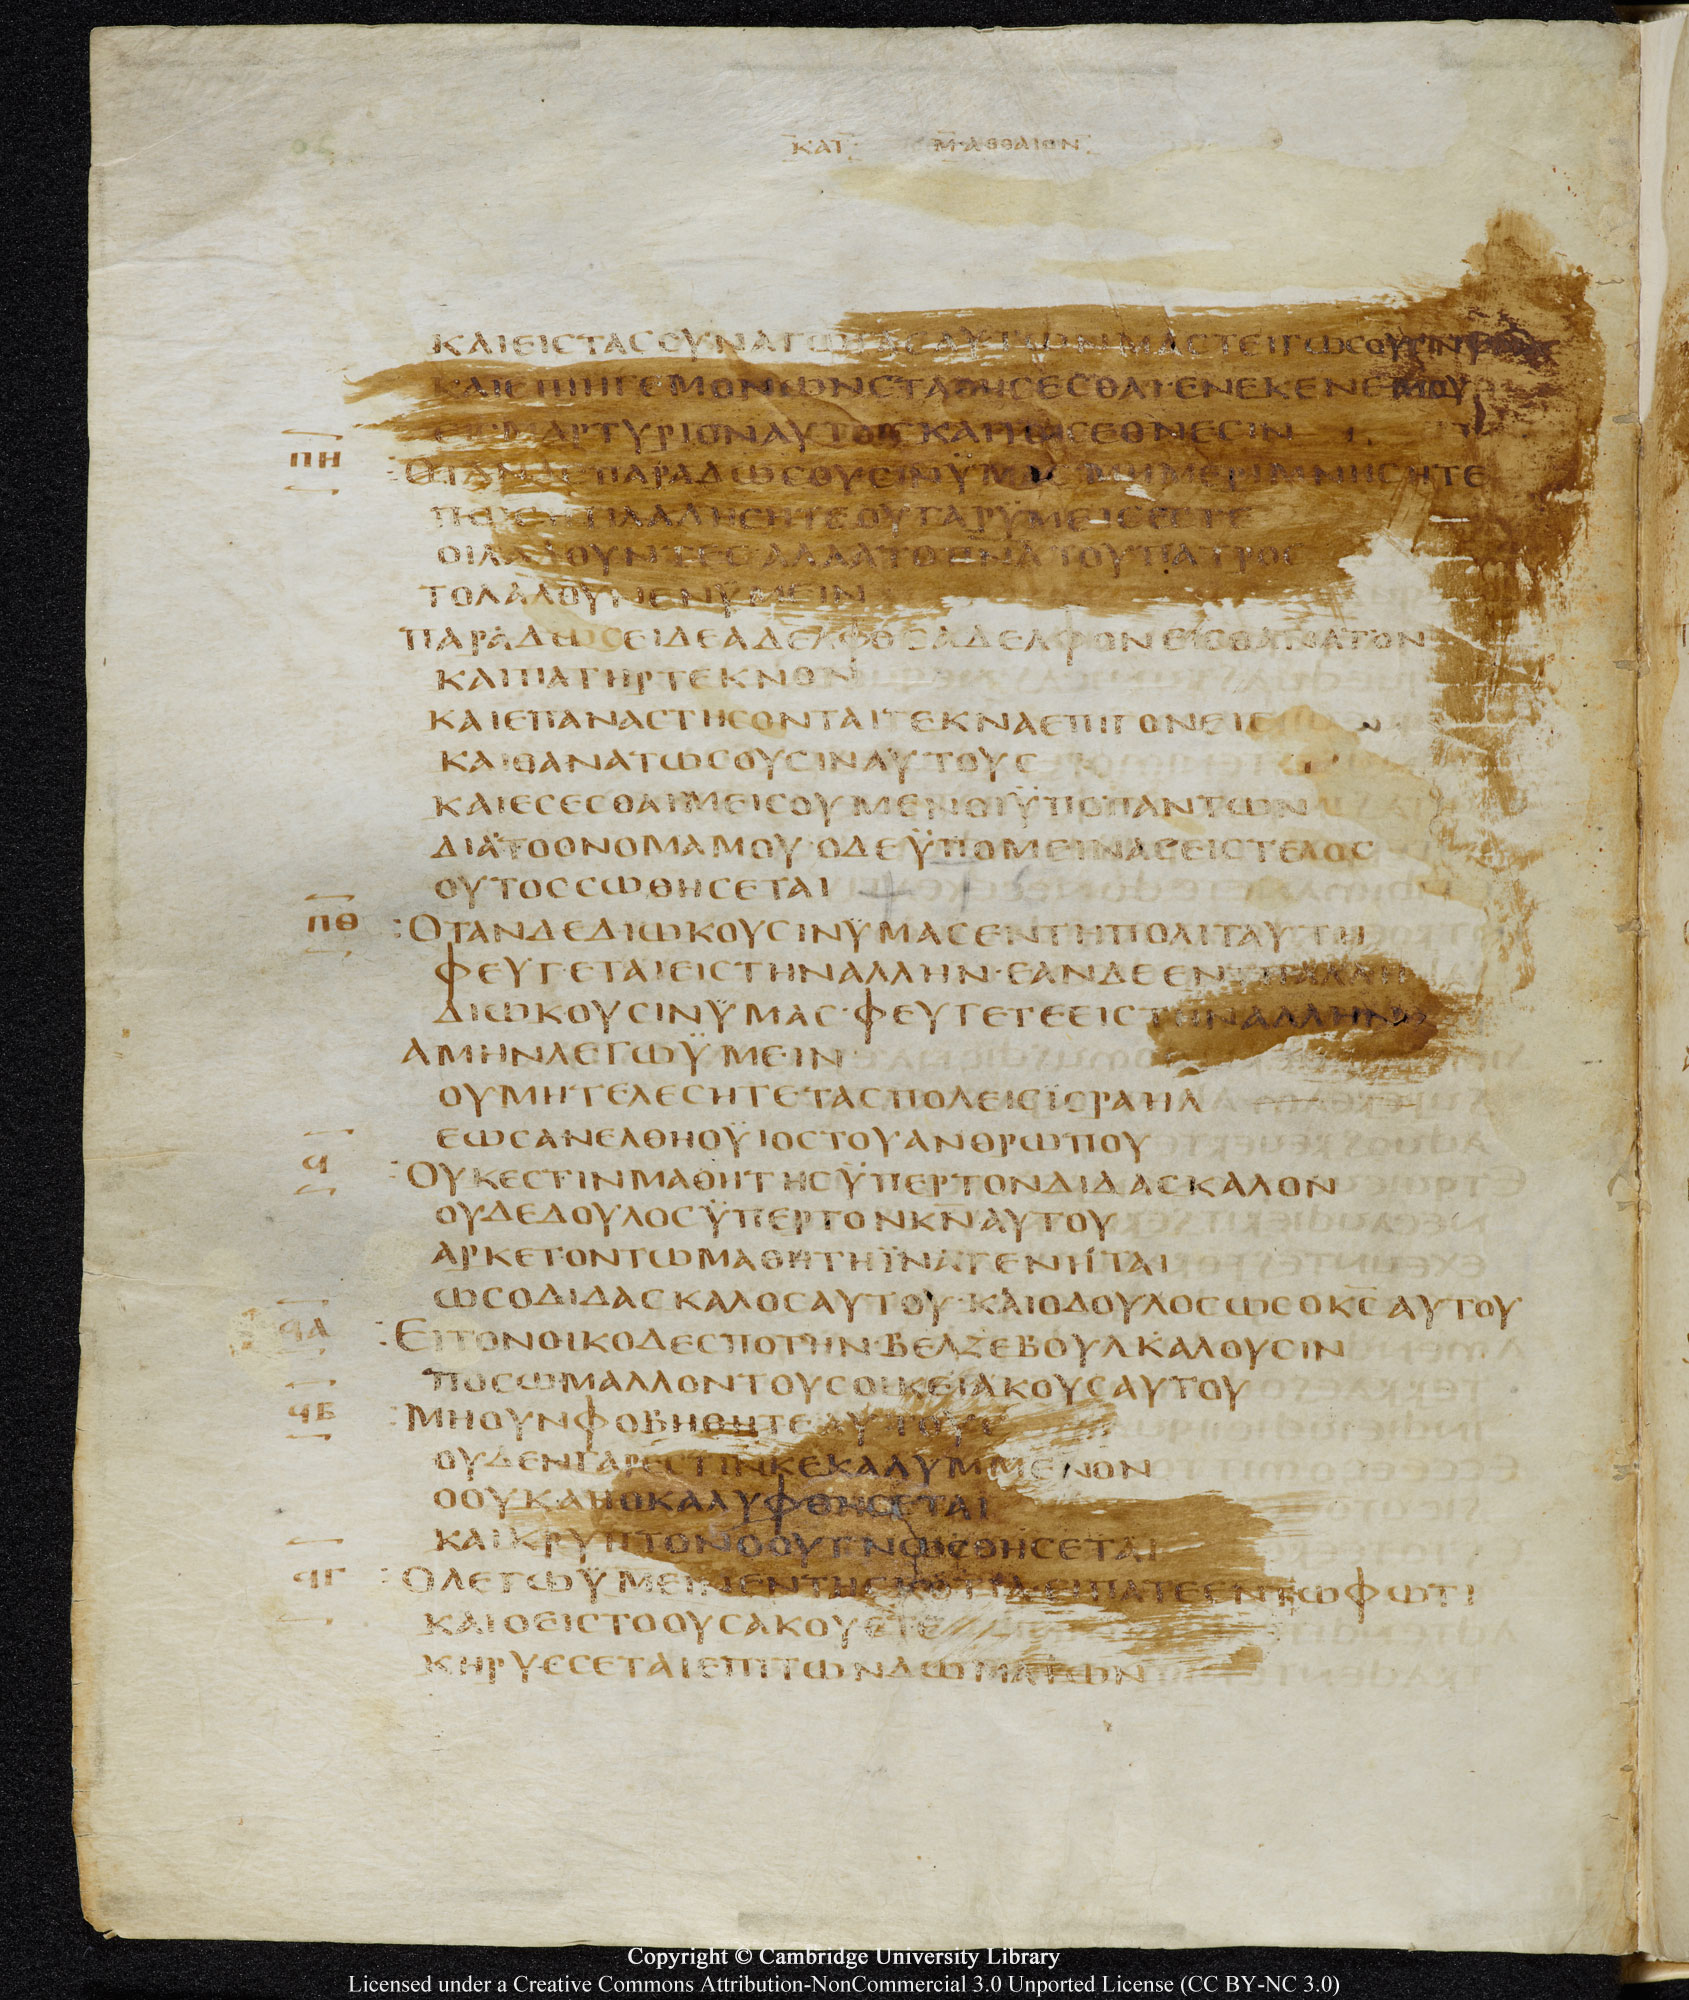 ΚΑΤ ΜΑΘΘΑΙΟΝ
ΚΑΙΕΙΣΤΑΣΟΥΝΑΓΩΓΑΣΑΥΤΩΝΜΑΣΤΕΙΓΩΣΟΥΣΙΝΥΜΑΣ
ΚΑΙΕΠΙΗΓΕΜΟΝΩΝΣΤΑΘΗΣΕΣΘΑΙ·ΕΝΕΚΕΝΕΜΟΥ
ΕΙΣΜΑΡΤΥΡΙΟΝΑΥΤΟΙΣΚΑΙΤΟΙΣΕΘΝΕΣΙΝ
ΠΗ :ΟΤΑΝΔΕΠΑΡΑΔΩΣΟΥΣΙΝΫΜΑΣ ΜΗΜΕΡΙΜΝΗΣΗΤΕ
ΠΩΣΗΤΙΛΑΛΗΣΗΤΕΟΥΓΑΡΫΜΕΙΣΕΣΤΕ
ΟΙΛΑΛΟΥΝΤΕΣΑΛΛΑΤΟΠΝΑΤΟΥΠΑΤΡΟΣ
ΤΟΛΑΛΟΥΝΕΝΫΜΕΙΝ
ΠΑΡΑΔΩΣΕΙΔΕΑΔΕΛΦΟΣΑΔΕΛΦΟΝΕΙΣΘΑΝΑΤΟΝ
ΚΑΙΠΑΤΗΡΤΕΚΝΟΝ
ΚΑΙΕΠΑΝΑΣΤΗΣΟΝΤΑΙΤΕΚΝΑΕΠΙΓΟΝΕΙΣ
ΚΑΙΘΑΝΑΤΩΣΟΥΣΙΝΑΥΤΟΥΣ
ΚΑΙΕΣΕΣΘΑΙΜΕΙΣΟΥΜΕΝΟΙΫΠΟΠΑΝΤΩΝ
ΔΙΑΤΟΟΝΟΜΑΜΟΥ·ΟΔΕΫΠΟΜΕΙΝΑΣΕΙΣΤΕΛΟΣ
ΟΥΤΟΣΣΩΘΗΣΕΤΑΙ
ΠΘ :ΟΤΑΝΔΕΔΙΩΚΟΥΣΙΝΫΜΑΣΕΝΤΗΠΟΛΙΤΑΥΤΗ
ΦΕΥΓΕΤΑΙΕΙΣΤΗΝΑΛΛΗΝ·ΕΑΝΔΕΕΝΤΗΑΛΛΗ
ΔΙΩΚΟΥΣΙΝΫΜΑΣ·ΦΕΥΓΕΤΕΕΙΣΤΗΝΑΛΛΗΝ
ΑΜΗΝΛΕΓΩΫΜΕΙΝ
ΟΥΜΗΤΕΛΕΣΗΤΕΤΑΣΠΟΛΕΙΣΪΣΡΑΗΛ
ΕΩΣΑΝΕΛΘΗΟΫΙΟΣΤΟΥΑΝΘΡΩΠΟΥ
Ϥ :ΟΥΚΕΣΤΙΝΜΑΘΗΤΗΣΫΠΕΡΤΟΝΔΙΔΑΣΚΑΛΟΝ
ΟΥΔΕΔΟΥΛΟΣΫΠΕΡΤΟΝΚΝΑΥΤΟΥ
ΑΡΚΕΤΟΝΤΩΜΑΘΗΤΗΪΝΑΓΕΝΗΤΑΙ
ΩΣΟΔΙΔΑΣΚΑΛΟΣΑΥΤΟΥ·ΚΑΙΟΔΟΥΛΟΣΩΣΟΚΣΑΥΤΟΥ
ϤΑ :ΕΙΤΟΝΟΙΚΟΔΕΣΠΟΤΗΝ·ΒΕΛΖΕΒΟΥΛΚΑΛΟΥΣΙΝ
ΠΟΣΩΜΑΛΛΟΝΤΟΥΣΟΙΚΕΙΑΚΟΥΣΑΥΤΟΥ
ϤΒ :ΜΗΟΥΝΦΟΒΗΘΗΤΕΑΥΤΟΥΣ
ΟΥΔΕΝΓΑΡΕΣΤΙΝΚΕΚΑΛΥΜΜΕΝΟΝ
ΟΟΥΚΑΠΟΚΑΛΥΦΘΗΣΕΤΑΙ
ΚΑΙΚΡΥΠΤΟΝΟΟΥΓΝΩΣΘΗΣΕΤΑΙ
ϤΓ :ΟΛΕΓΩΫΜΕΙΝΕΝΤΗΣΚΟΤΙΑΕΙΠΑΤΕΕΝΤΩΦΩΤΙ
ΚΑΙΟΕΙΣΤΟΟΥΣΑΚΟΥΕΤΕ
ΚΗΡΥΣΣΕΤΑΙΕΠΙΤΩΝΔΩΜΑΤΩΝ
Copyright © Cambridge University Library
Licensed under a Creative Commons Attribution-NonCommercial 3.0 Unported License (CC BY-NC 3.0)